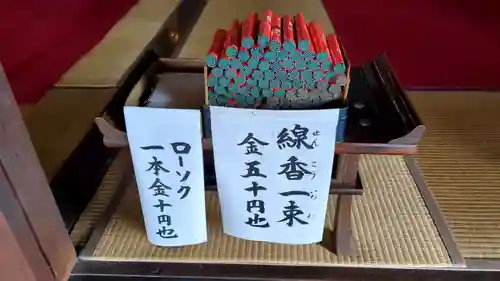 線香一束
せんこう いちわ
金五十円也
ローソク
一本金十円也